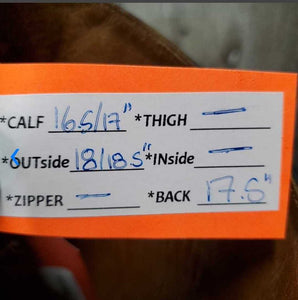 *CALF 16.5/17" *THIGH —
*OUTside 18/18.5" *INside —
*ZIPPER — *BACK 17.5"